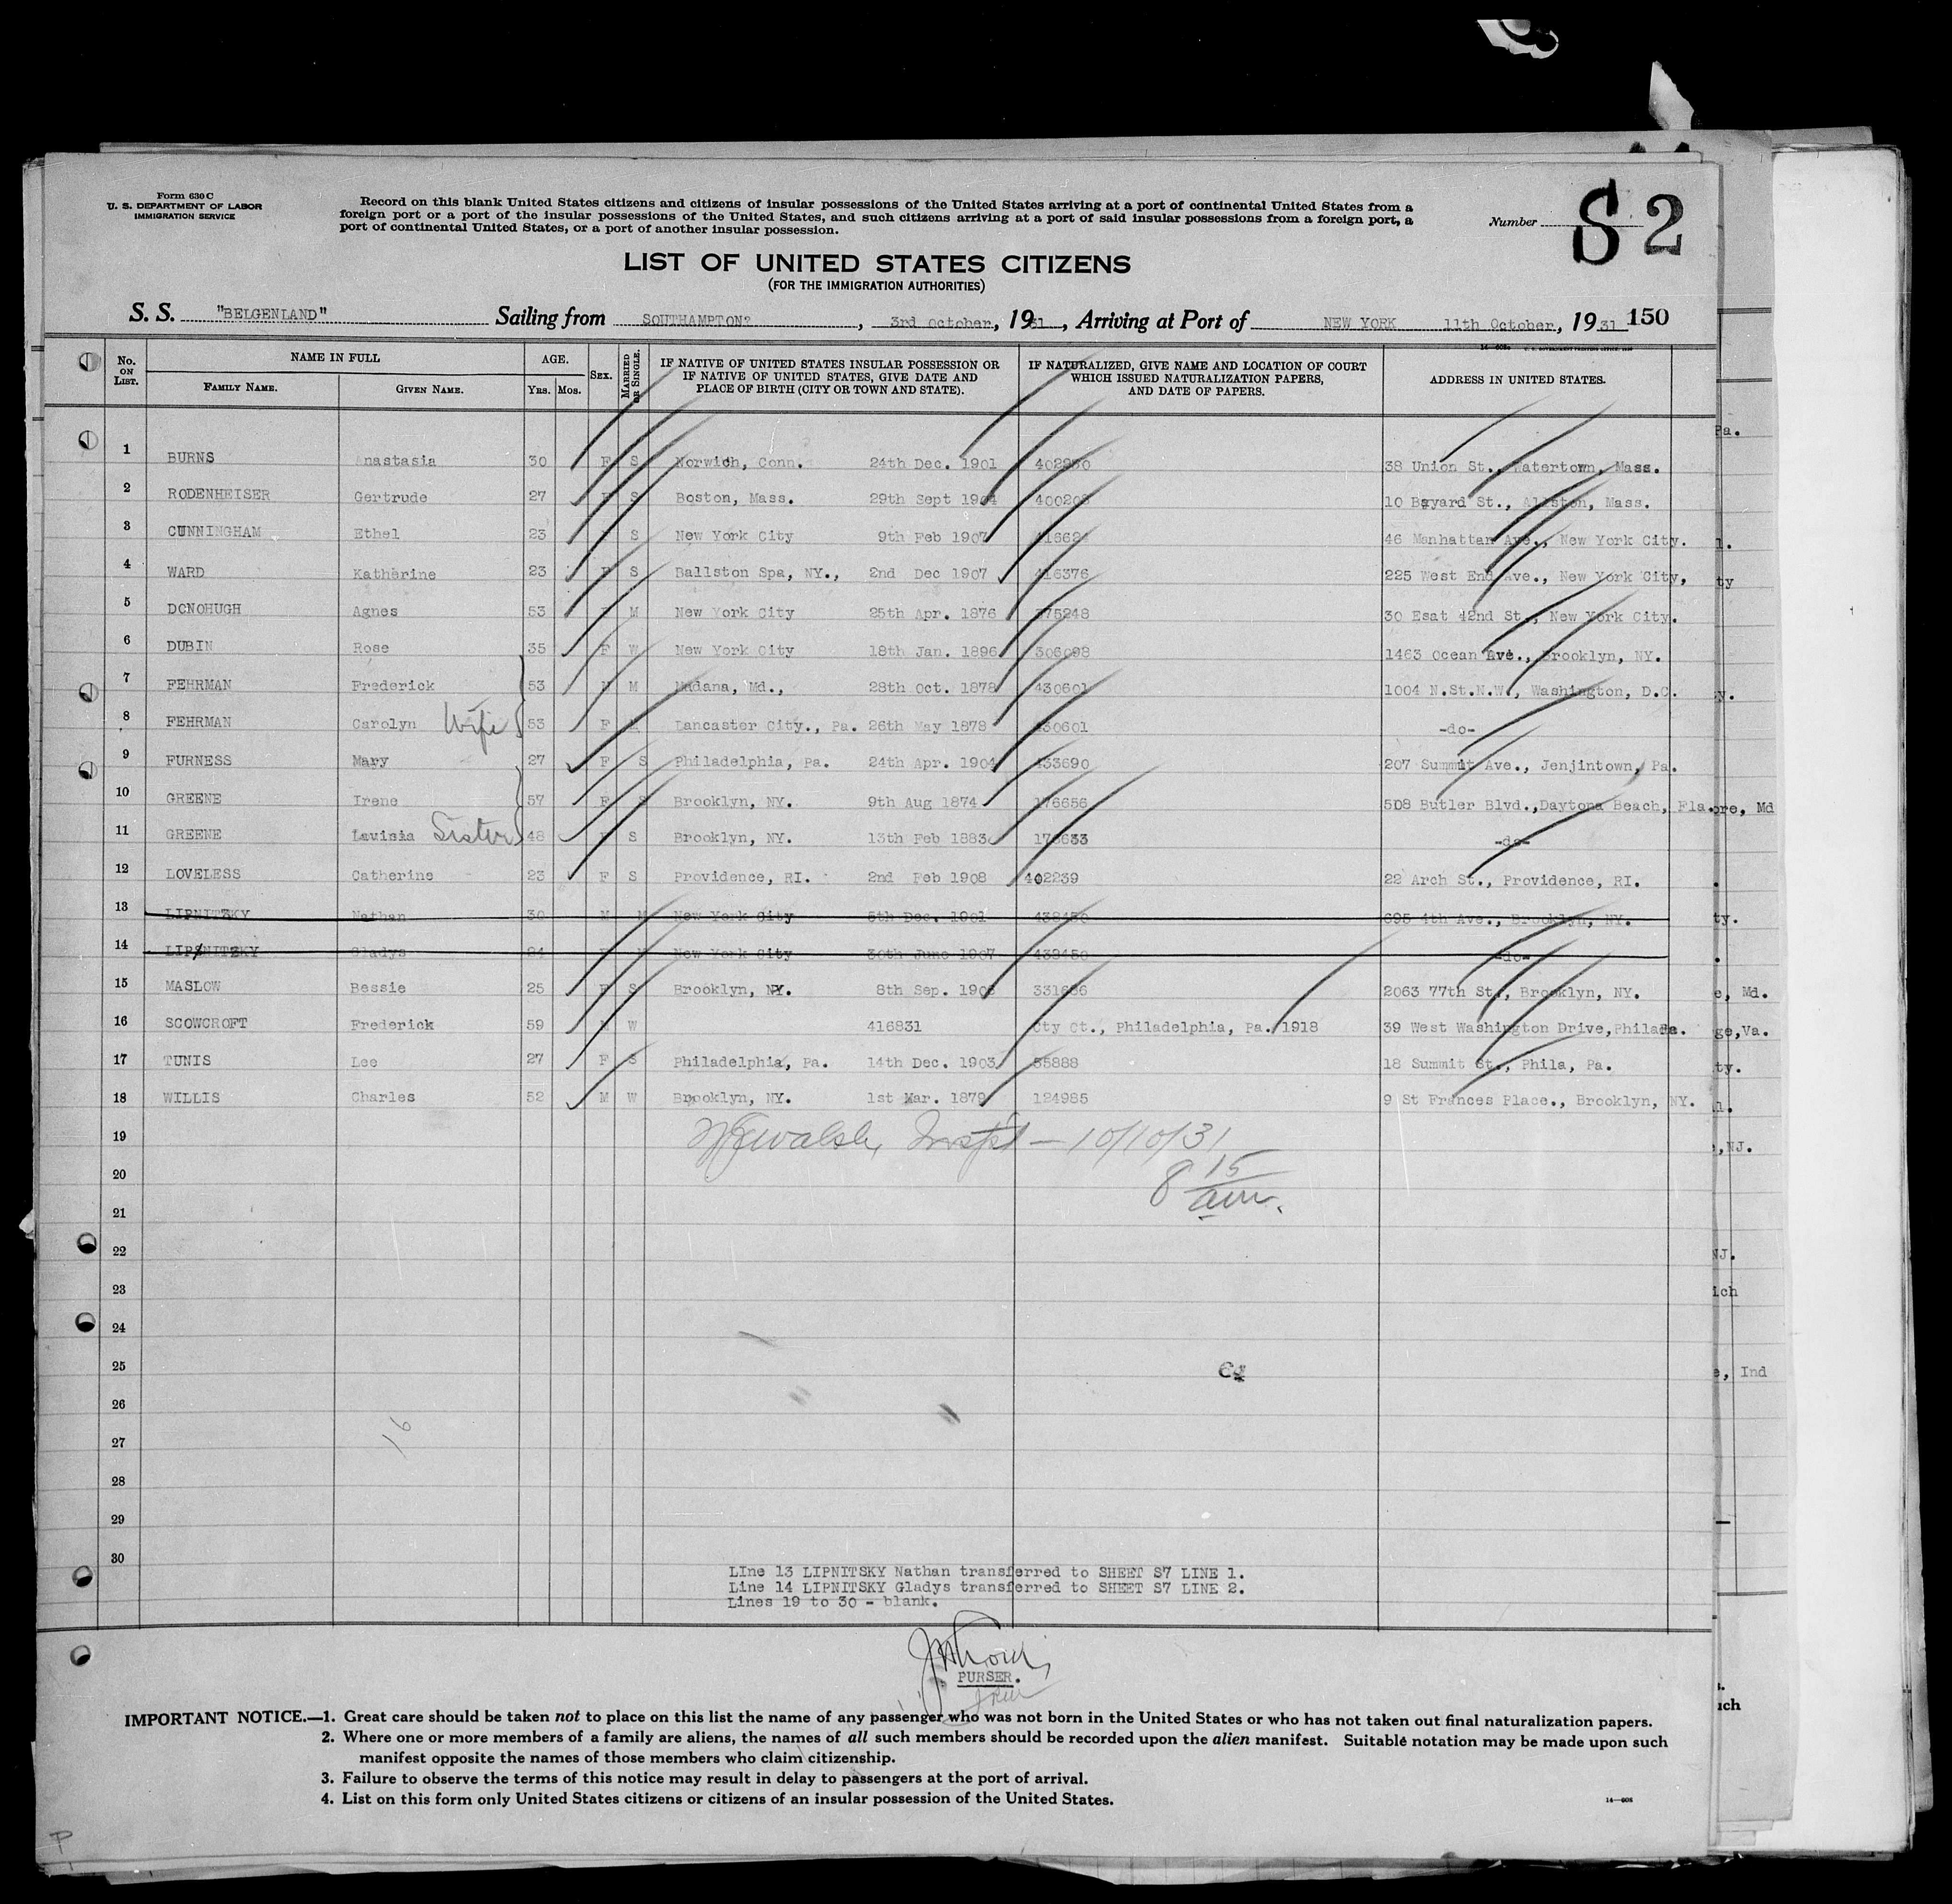 Form 630 C
U. S. DEPARTMENT OF LABOR
IMMIGRATION SERVICE
Record on this blank United States citizens and citizens of insular possessions of the United States arriving at a port of continental United States from a
foreign port or a port of the insular possessions of the United States, and such citizens arriving at a port of said insular possessions from a foreign port, a
port of continental United States, or a port of another insular possession.
Number S 2
LIST OF UNITED STATES CITIZENS
(FOR THE IMMIGRATION AUTHORITIES)
S. S. "BELGENLAND" Sailing from SOUTHAMPTON? , 3rd October, 1931, Arriving at Port of NEW YORK 11th October, 1931 150
No. ON LIST. NAME IN FULL AGE. SEX. MARRIED OR SINGLE. IF NATIVE OF UNITED STATES INSULAR POSSESSION OR IF NATIVE OF UNITED STATES, GIVE DATE AND PLACE OF BIRTH (CITY OR TOWN AND STATE). IF NATURALIZED, GIVE NAME AND LOCATION OF COURT WHICH ISSUED NATURALIZATION PAPERS, AND DATE OF PAPERS. ADDRESS IN UNITED STATES.
FAMILY NAME. GIVEN NAME. YRS. MOS.
1 BURNS Anastasia 30 F S Norwich, Conn. 24th Dec. 1901 402950 38 Union St., Watertown, Mass.
2 RODENHEISER Gertrude 27 F S Boston, Mass. 29th Sept 1904 400208 10 Bayard St., Allston, Mass.
3 CUNNINGHAM Ethel 23 S New York City 9th Feb 1907 46 Manhattan Ave., New York City.
4 WARD Katherine 23 F S Ballston Spa, NY., 2nd Dec 1907 416376 225 West End Ave., New York City,
5 DONOHUGH Agnes 53 M New York City 25th Apr. 1876 375248 30 Esat 42nd St., New York City.
6 DUBIN Rose 35 F W New York City 18th Jan. 1896 306098 1463 Ocean Ave., Brooklyn, NY.
7 FEHRMAN Frederick 53 M M Madana, Md., 28th Oct. 1878 430601 1004 N.St.N.W., Washington, D.C.
8 FEHRMAN Carolyn Wife 53 F M Lancaster City., Pa. 26th May 1878 430601 -do-
9 FURNESS Mary 27 F S Philadelphia, Pa. 24th Apr. 1904 433690 207 Summit Ave., Jenjintown, Pa.
10 GREENE Irene 57 F S Brooklyn, NY. 9th Aug 1874 176656 508 Butler Blvd.,Daytona Beach, Fla.
11 GREENE Lavisia Sister 48 F S Brooklyn, NY. 13th Feb 1883 176633 -do-
12 LOVELESS Catherine 23 F S Providence, RI. 2nd Feb 1908 402239 22 Arch St., Providence, RI.
13 LIPNITZKY Nathan 30 M M New York City 5th Dec. 1901 695 4th Ave., Brooklyn, NY.
14 LIPSNITZKY Gladys 24 F M New York City 30th June 1907 -do-
15 MASLOW Bessie 25 F S Brooklyn, NY. 8th Sep. 1906 331686 2063 77th St., Brooklyn, NY.
16 SCOWCROFT Frederick 59 M W 416831 Cty Ct., Philadelphia, Pa. 1918 39 West Washington Drive,Philada.
17 TUNIS Lee 27 F S Philadelphia, Pa. 14th Dec. 1903 55888 18 Summit St., Phila, Pa.
18 WILLIS Charles 52 M W Brooklyn, NY. 1st Mar. 1879 124985 9 St Frances Place., Brooklyn, NY.
19 Walsh, Inspt — 10/10/31
20 8 15 am.
21
22
23
24
25
26
27 16
28
29
30
LIne 13 LIPNITSKY Nathan transferred to SHEET S7 LINE 1.
Line 14 LIPNITSKY Gladys transferred to SHEET S7 LINE 2.
Lines 19 to 30 - blank.
PURSER.
IMPORTANT NOTICE.—1. Great care should be taken not to place on this list the name of any passenger who was not born in the United States or who has not taken out final naturalization papers.
2. Where one or more members of a family are aliens, the names of all such members should be recorded upon the alien manifest. Suitable notation may be made upon such
manifest opposite the names of those members who claim citizenship.
3. Failure to observe the terms of this notice may result in delay to passengers at the port of arrival.
4. List on this form only United States citizens or citizens of an insular possession of the United States.
14—608
P